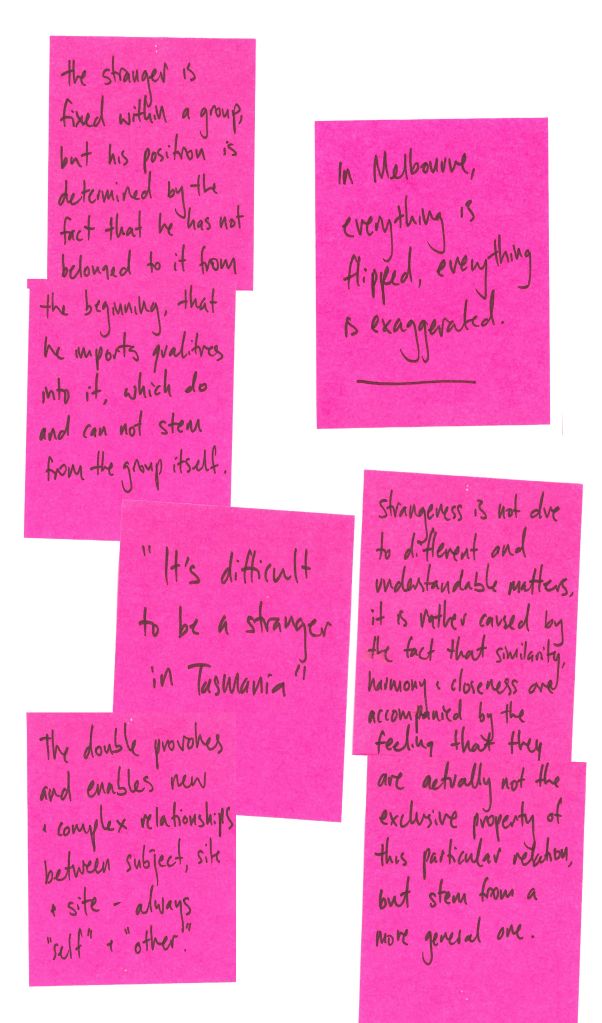 the stranger is
fixed within a group,
but his position is
determined by the
fact that he has not
belonged to it from
the beginning, that
he imports qualities
into it, which do
and can not stem
from the group itself.
In Melbourne,
everything is
flipped, everything
is exaggerated.
"It's difficult
to be a stranger
in Tasmania"
Strangeness is not due
to different and
understandable matters,
it is rather caused by
the fact that similarity,
harmony + closeness are
accompanied by the
feeling that they
are actually not the
exclusive property of
this particular relation,
but stem from a
more general one.
The double provokes
and enables new
+ complex relationships
between subject, site
+ site - always
"self" + "other".